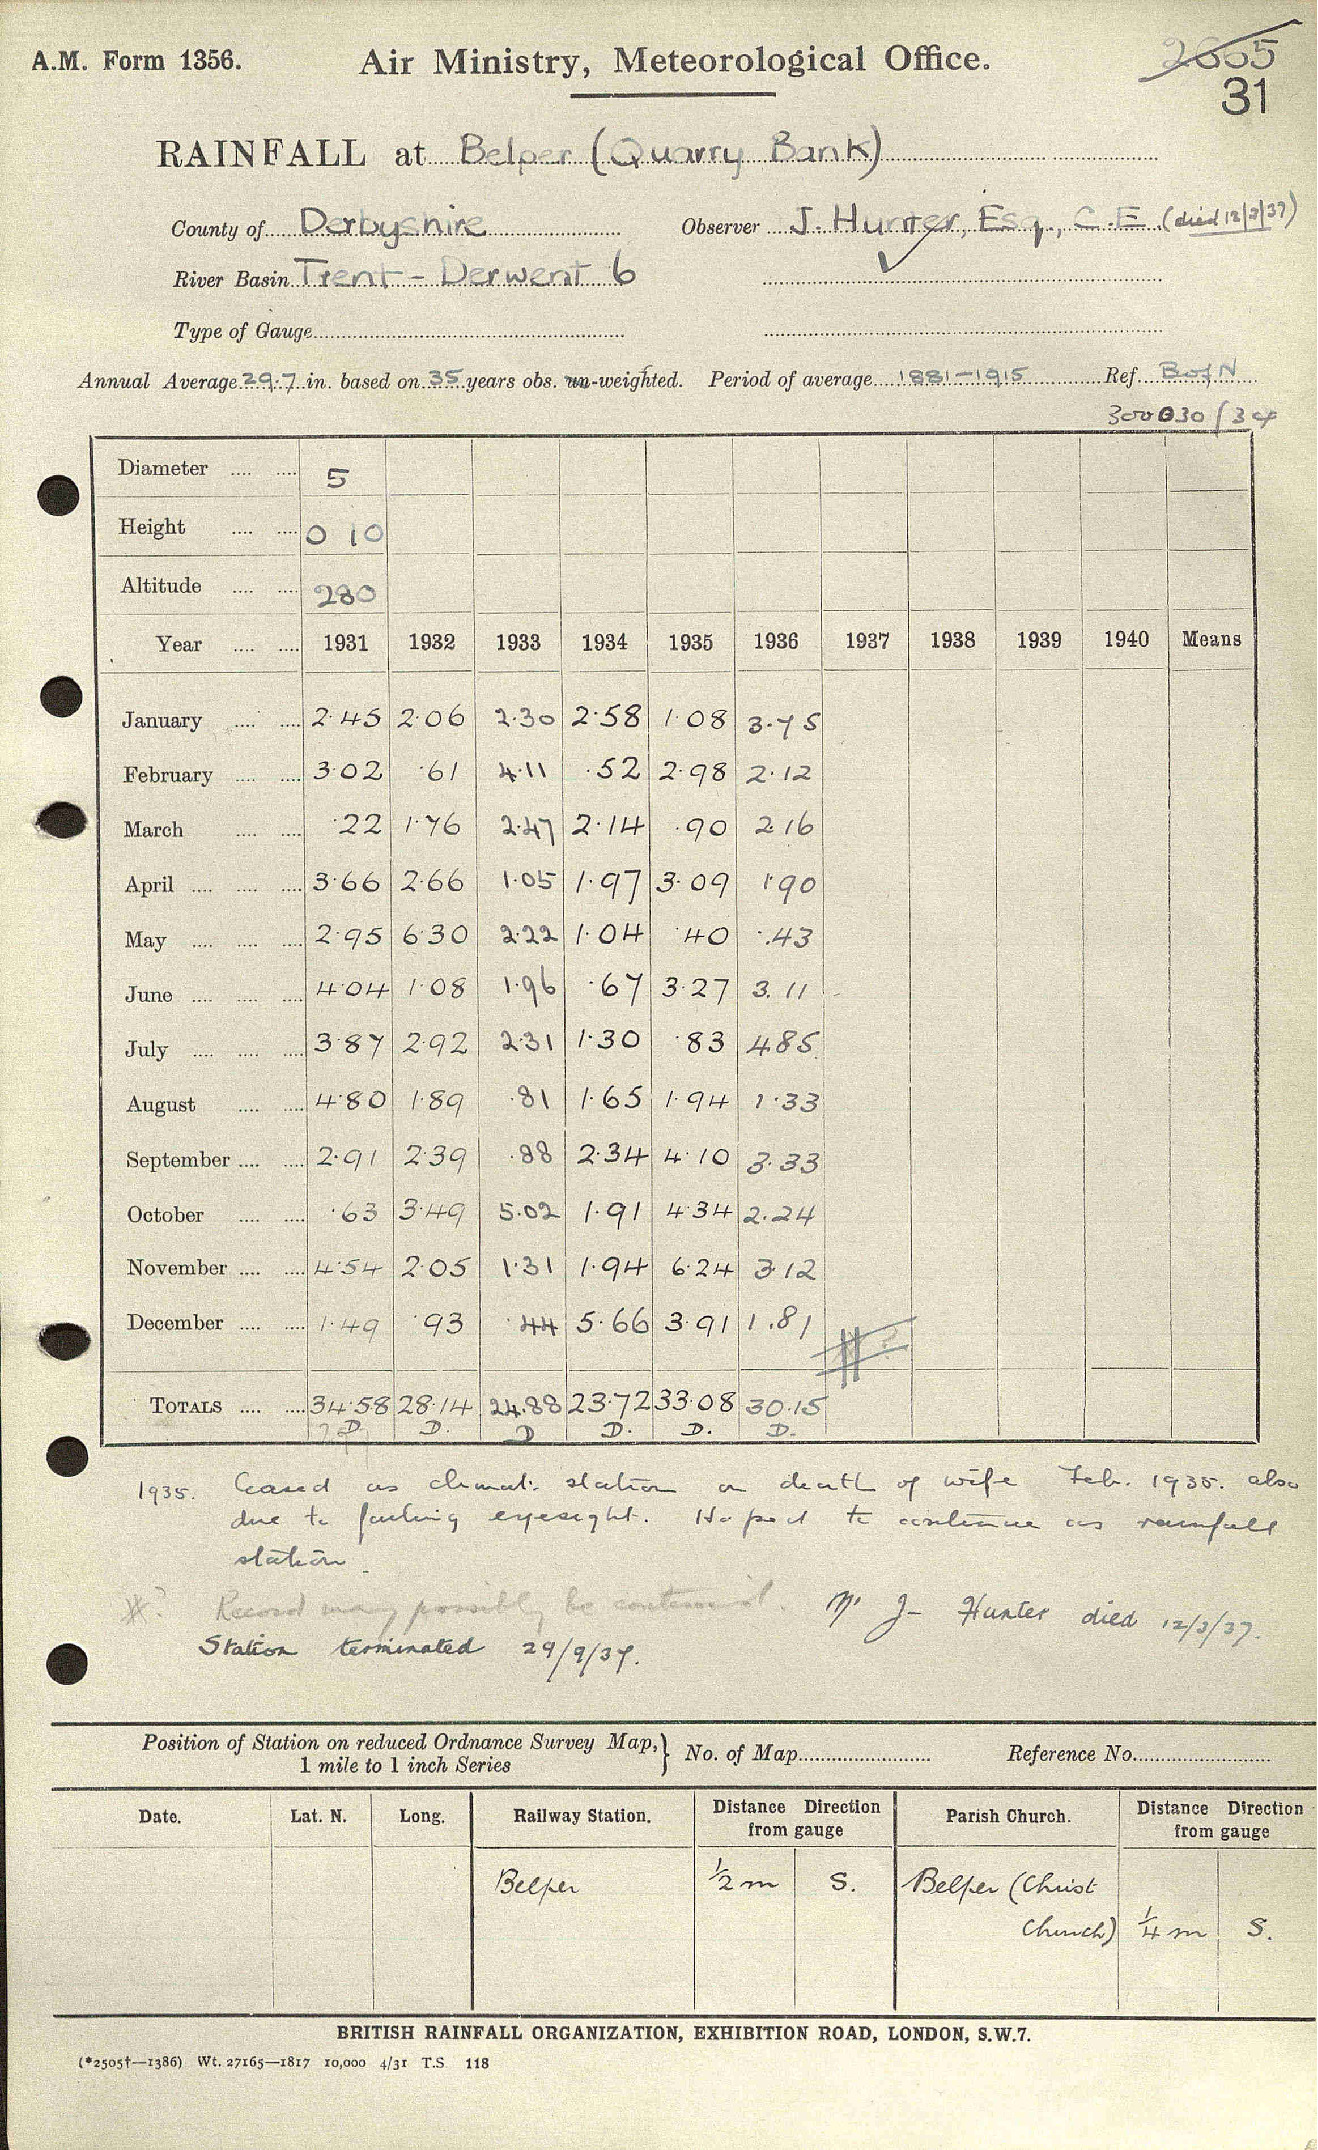 A.M. Form 1356. Air Ministry, Meteorological Office. 2665
31
RAINFALL at Belper (Quarry Bank)
County of Derbyshire Observer J. Hunter, Esq., C.E. (died 12/3/37)
River Basin Trent - Derwent 6
Type of Gauge
Annual Average 29.7 in. based on 35 years obs. un-weighted. Period of average 1881-1915 Ref. B of N
Diameter .... .... 5
Height .... .... 0 10
Altitude .... .... 280
Year .... .... 1931 1932 1933 1934 1935 1936 1937 1938 1939 1940 Means
January .... .... 2.45 2.06 2.30 2.58 1.08 3.75
February .... .... 3.02 .61 4.11 .52 2.98 2.12
March .... .... .22 1.76 2.47 2.14 .90 2.16
April .... .... .... 3.66 2.66 1.05 1.97 3.09 1.90
May .... .... .... 2.95 6.30 2.22 1.04 .40 .43
June .... .... .... 4.04 1.08 1.96 .67 3.27 3.11
July .... .... .... 3.87 2.92 2.31 1.30 .83 4.85
August .... .... 4.80 1.89 .81 1.65 1.94 1.33
September .... .... 2.91 2.39 .88 2.34 4.10 3.33
October .... .... .63 3.49 5.02 1.91 4.34 2.24
November .... .... 4.54 2.05 1.31 1.94 6.24 3.12
December .... .... 1.49 .93 .44 5.66 3.91 1.81
TOTALS .... .... 34.58 28.14 24.88 23.72 33.08 30.15
D D. D D. D. D.
1935. Ceased as climat. station on death of wife Feb. 1935. also
due to failing eyesight. Hoped to continue as rainfall
station.
Record may possibly be continued. Mr J. Hunter died 12/3/37.
Station terminated 29/9/37.
Position of Station on reduced Ordnance Survey Map, } No. of Map Reference No.
1 mile to 1 inch Series
Date. Lat. N. Long. Railway Station. Distance Direction from gauge Parish Church. Distance Direction from gauge
Belper 1/2 m S. Belper (Christ
Church) 1/4 m S.
BRITISH RAINFALL ORGANIZATION, EXHIBITION ROAD, LONDON, S.W.7.
(*2505†—1386) Wt. 27165—1817 10,000 4/31 T.S 118